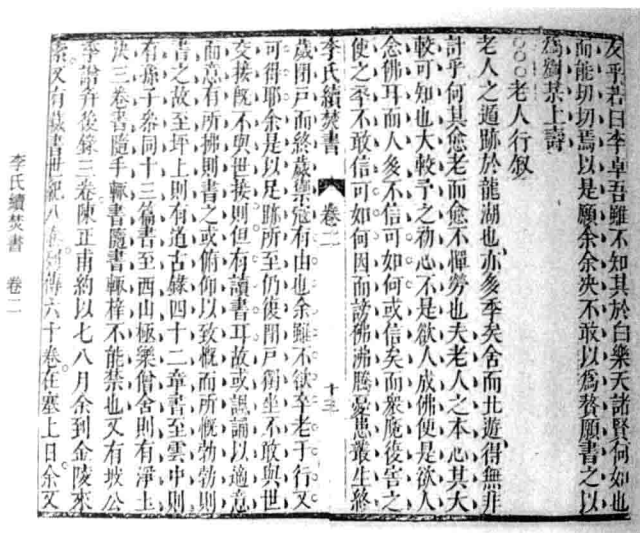 友乎若曰李卓吾雖不知其於白樂天諸賢何如也
而能切切焉以是願余余決不敢以爲贅願書之以
爲劉某上壽
○○○老人行敘
老人之遁跡於龍湖也亦多季矣舍而北遊得無非
計乎何其愈老而愈不憚勞也夫老人之本心其大
較可知也大較予之初心不是欲人成佛便是欲人
念佛耳而人多不信可如何或信矣而衆魔復害之
使之卒不敢信可如何因而謗佛沸騰憂患叢生終
李氏續焚書 卷二 十三
歲閉戶而終歲禦寇有由也余雖不欲卒老于行又
可得耶余是以足跡所至仍復閉戶獨坐不敢與世
交接旣不與世接則但有讀書耳故或諷誦以適意
而意有所拂則書之或俯仰以致慨而所慨勃勃則
書之故至坪上則有道古錄四十二章書至雲中則
有孫子參同十三篇書至西山極樂僧舍則有淨土
決三卷書隨手輒書隨書輒梓不能禁也又有坡公
季譜并後錄三卷陳正甫約以七八月余到金陵來
索又有藏書世紀八卷列傳六十卷在塞上日余又
李氏續焚書 卷二